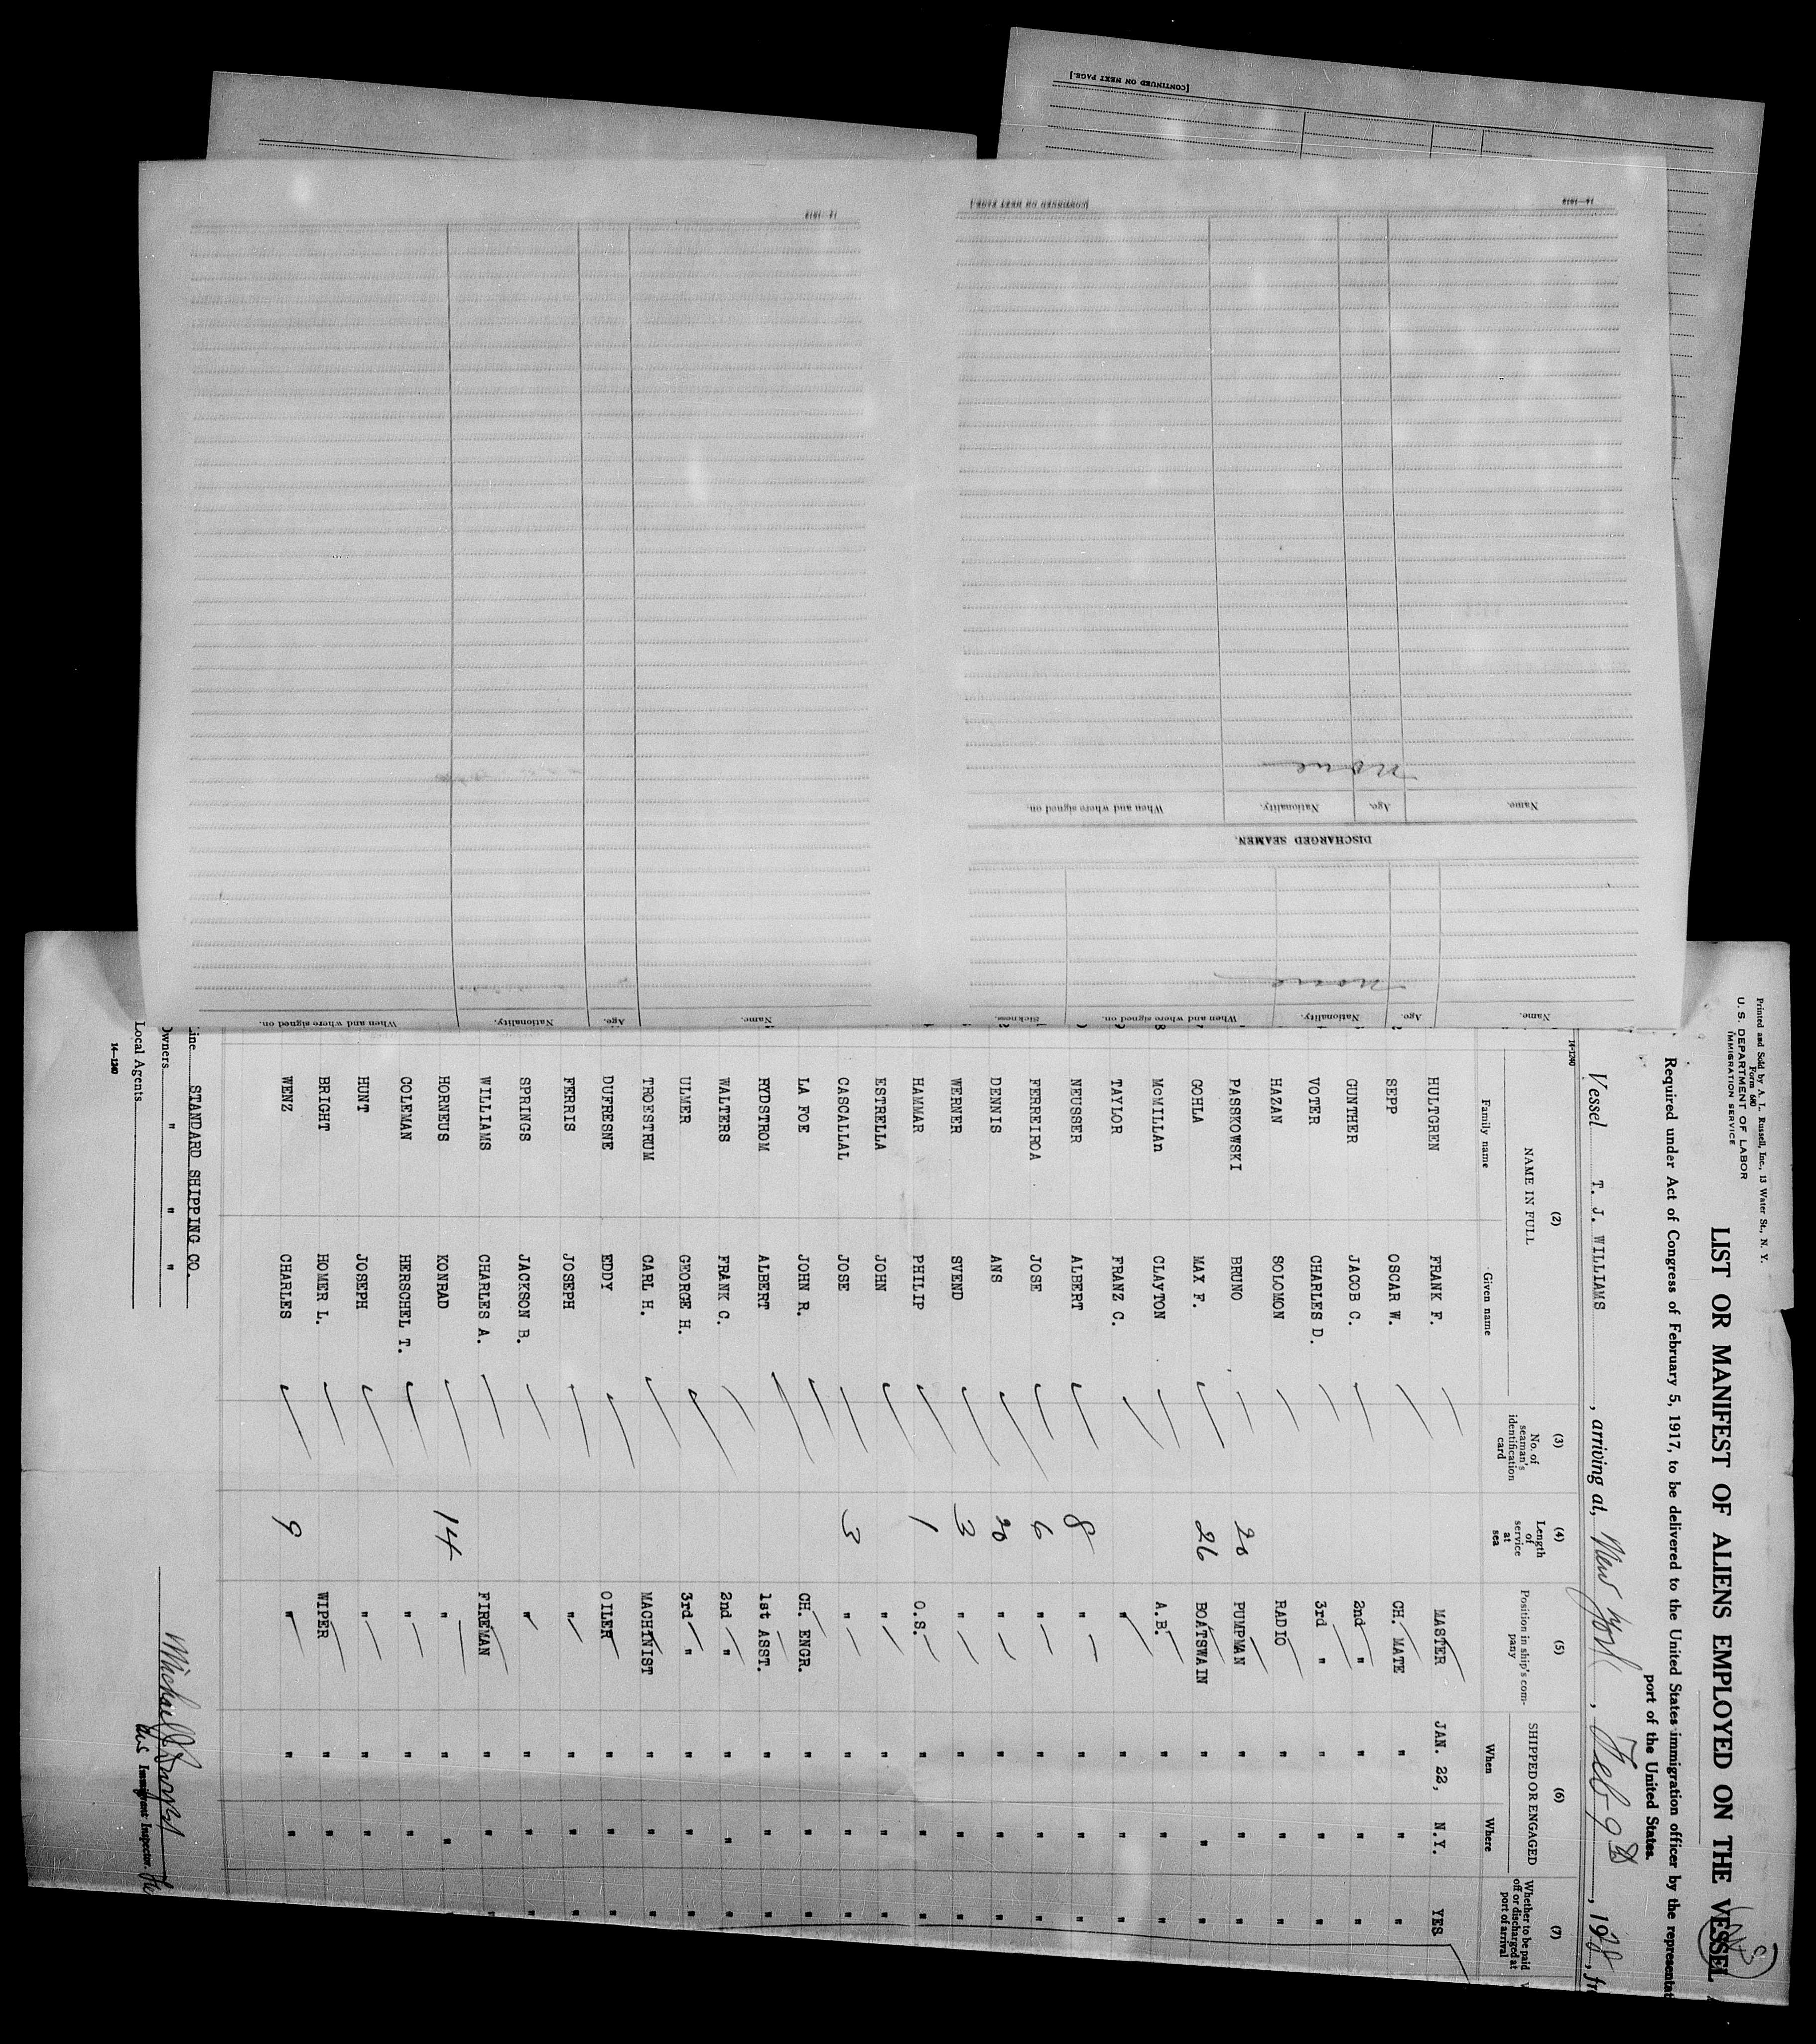 [CONTINUED ON NEXT PAGE.]
14—1919
[CONTINUED ON NEXT PAGE.]
14—1919
none
Name. Age. Nationality. When and where signed on.
DISCHARGED SEAMEN.
none
Name. Age. Nationality. When and where signed on. Sickness.
Name. Age. Nationality. When and where signed on.
Printed and Sold by A. L. Russell, Inc., 13 Water St., N. Y.
Form 680
U. S. DEPARTMENT OF LABOR
IMMIGRATION SERVICE
LIST OR MANIFEST OF ALIENS EMPLOYED ON THE VESSEL
Required under Act of Congress of February 5, 1917, to be delivered to the United States immigration officer by the representat
port of the United States.
Vessel T. J. WILLIAMS, arriving at, New York, Feb 9th, 1928, fr
14-1240
(2) (3) (4) (5) (6) (7)
NAME IN FULL No. of seaman's identification card Length of service at sea Position in ship's company SHIPPED OR ENGAGED Whether to be paid off or discharged at port of arrival
Family name Given name When Where
HULTGREN FRANK F. MASTER JAN. 22, N.Y. YES
SEPP OSCAR W. CH. MATE " " "
GUNTHER JACOB C. 2nd " " " "
VOTER CHARLES D. 3rd " " " "
HAZAN SOLOMON RADIO " " "
PASSKOWSKI BRUNO 20 PUMPMAN " " "
GOHLA MAX F. 26 BOATSWAIN " " "
McMILLAn CLAYTON A.B. " " "
TAYLOR FRANZ C. " " " "
NEUSSER ALBERT 8 " " " "
FERREIROA JOSE 6 " " " "
DENNIS ANS 20 " " " "
WERNER SVEND 3 " " " "
HAMMAR PHILIP 1 O.S. " " "
ESTRELLA JOHN " " " "
CASCALLAL JOSE 3 " " " "
LA FOE JOHN R. CH. ENGR. " " "
RYDSTROM ALBERT 1st ASST. " " "
WALTERS FRANK C. 2nd " " " "
ULMER GEORGE H. 3rd " " " "
TROESTRUM CARL H. MACHINIST " " "
DUFRESNE EDDY OILER " " "
FERRIS JOSEPH " " " "
SPRINGS JACKSON B. " " " "
WILLIAMS CHARLES A. FIREMAN " " "
HORNEUS KONRAD 14 " " "
COLEMAN HERSCHEL T. " " "
HUNT JOSEPH " " "
BRIGHT HOMER L. WIPER " "
WENZ CHARLES 9 " " "
Line STANDARD SHIPPING CO.
Owners " " "
Local Agents
Immigrant Inspector.
14—1240